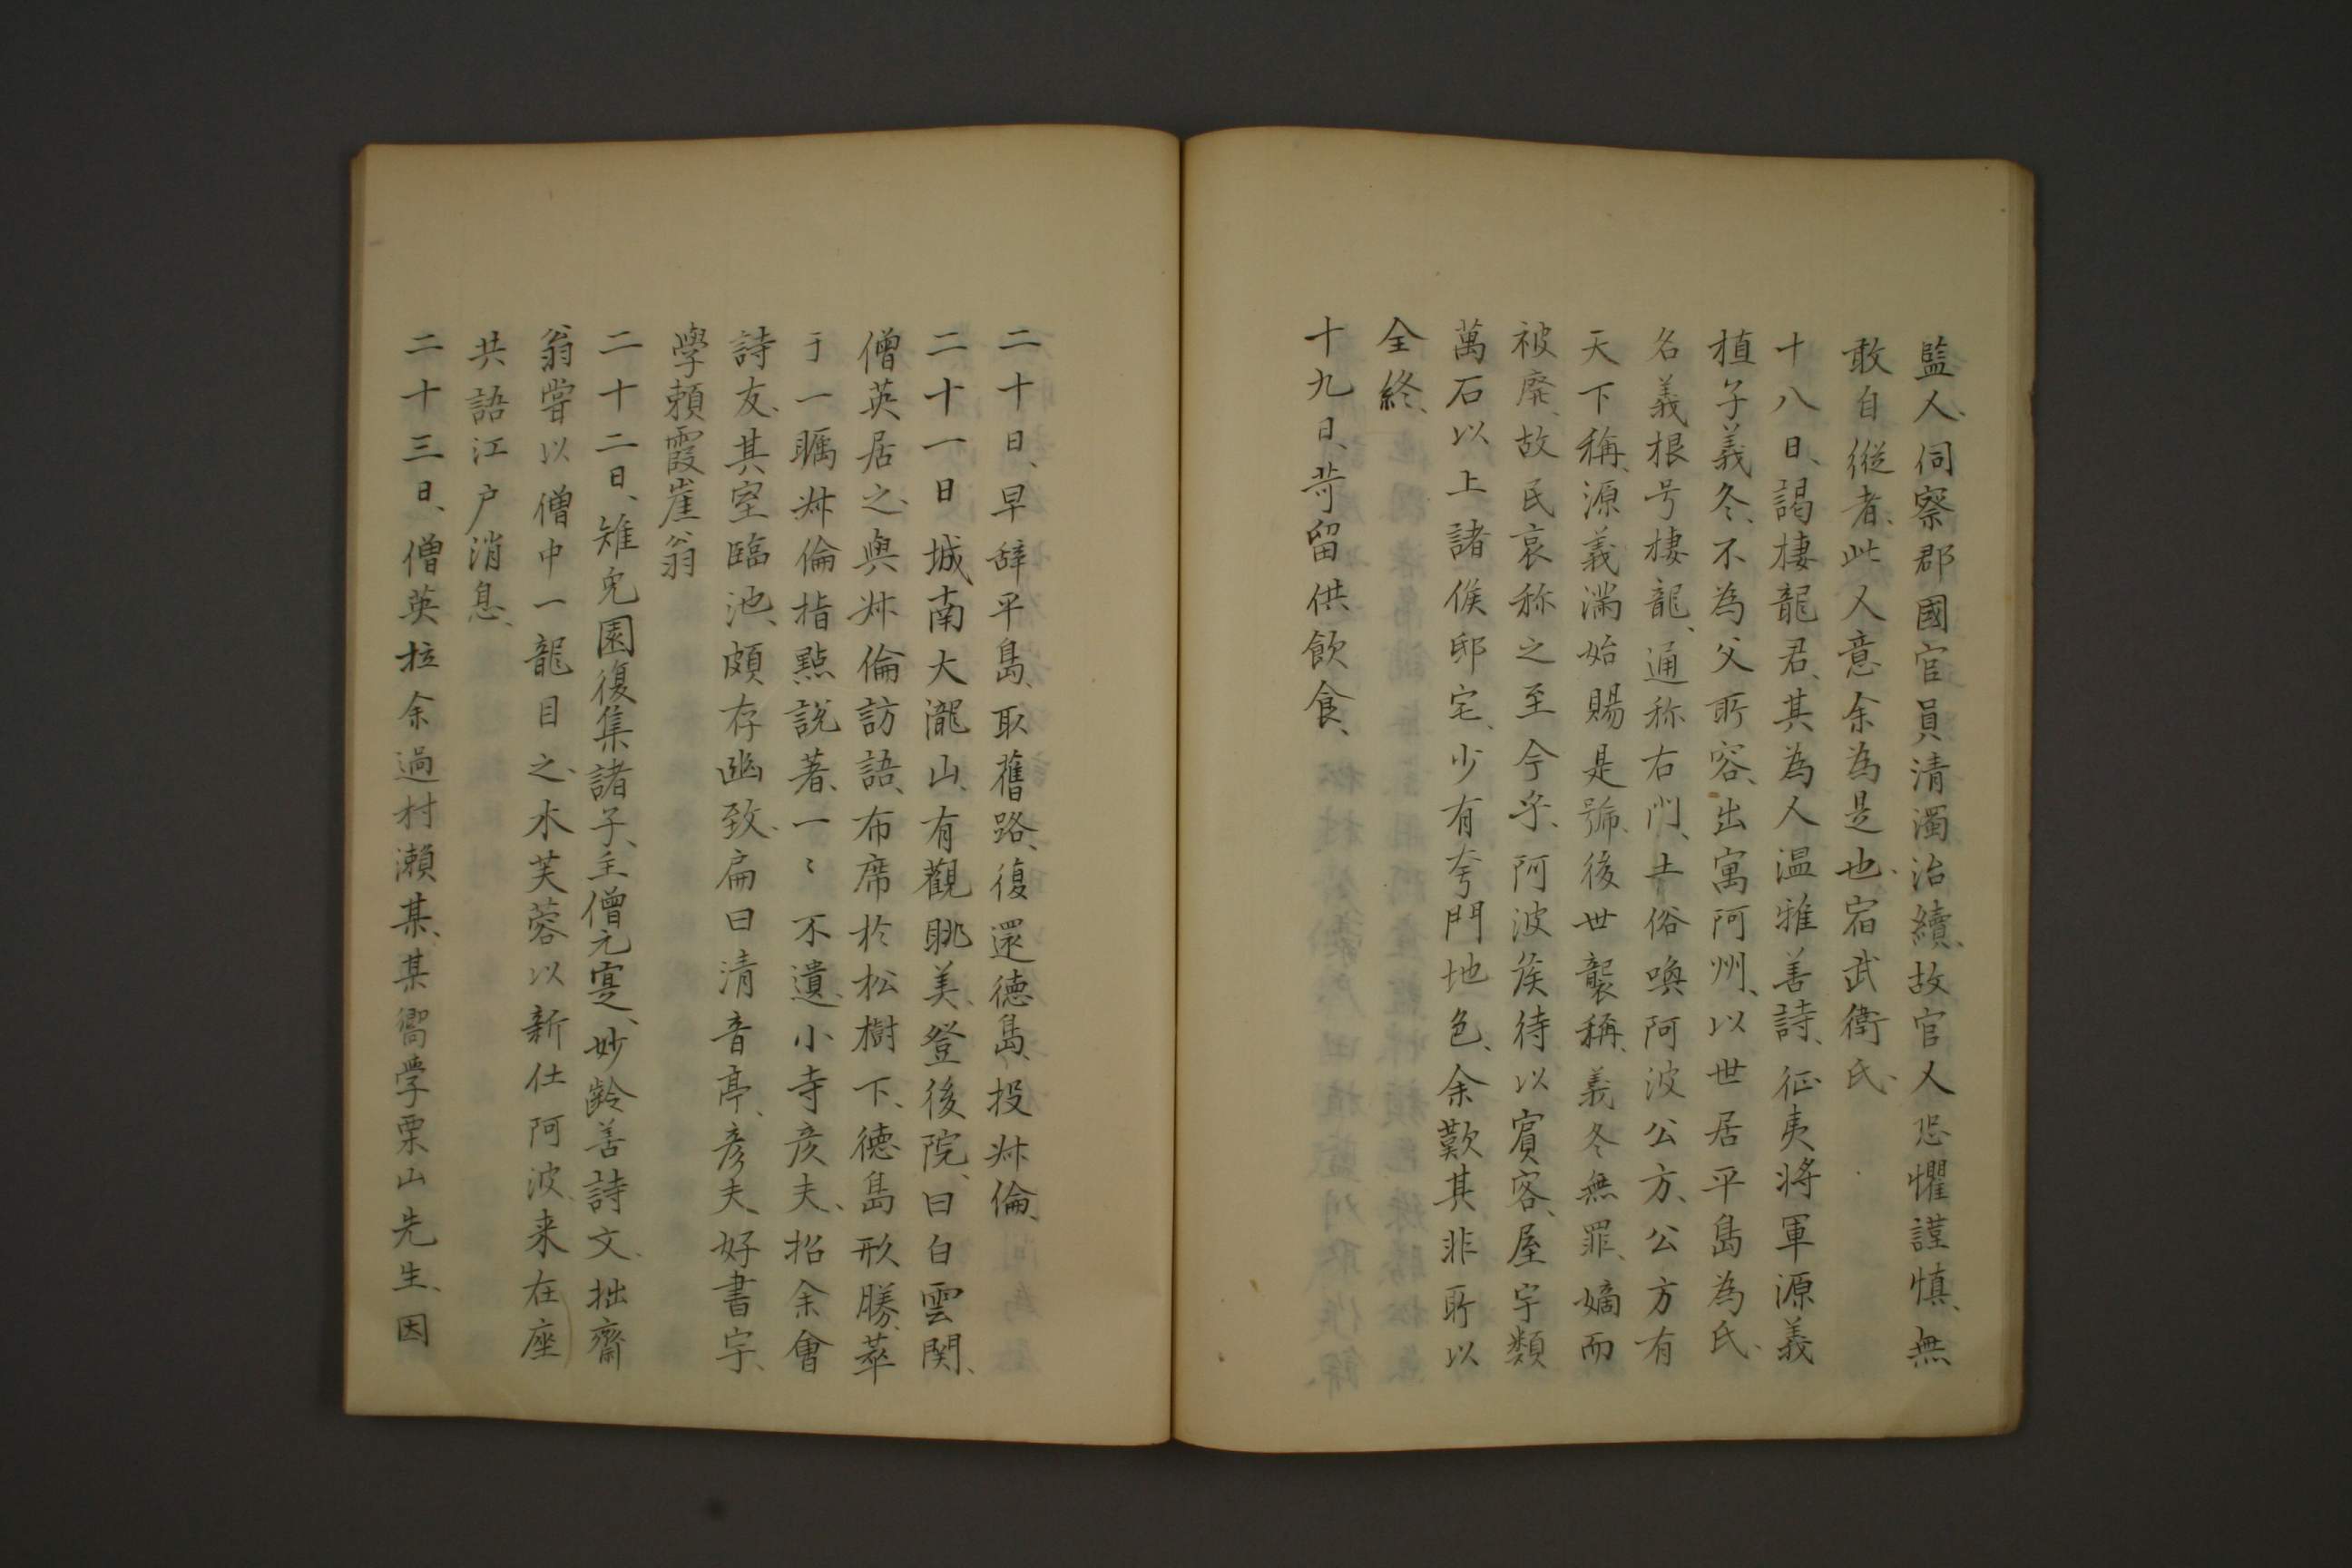 監人、伺察郡國官員清濁治績、故官人恐懼謹慎、無
敢自縦者、此人意余為是也、宿武衛氏、
十八日、謁棲龍君、其為人温雅善詩、征夷将軍源義
植子義冬、不為父所容、出寓阿州、以世居平島為氏、
名義根号棲龍、通称右門、土俗喚阿波公方、公方有
天下稱、源義満始賜是號、後世襲稱、義冬無罪、嫡而
被廃、故民哀称之至今乎、阿波侯待以賓客、屋宇類
萬石以上諸侯邸宅、少有夸門地色、余歎其非所以
全終、
十九日、苛留供飲食、
二十日、早辞平島、取舊路、復還徳島、投妹倫、
二十一日城南大瀧山、有觀眺美、登後院、曰白雲関、
僧英居之、與妹倫訪語、布席於松樹下、徳島形勝、萃
于一矚妹倫指點説著、一〻不遺、小寺彦夫、招余會
詩友、其室臨池、頗存幽致、扁曰清音亭、彦夫、好書宇、
學頼霞崖翁
二十二日、雉兔園復集諸子、主僧元寔、妙齢善詩文、拙齋
翁嘗以僧中一龍目之、木芙蓉以新仕阿波、来在座
共語江戸消息、
二十三日、僧英拉余過村瀬某、某嚮学栗山先生、因